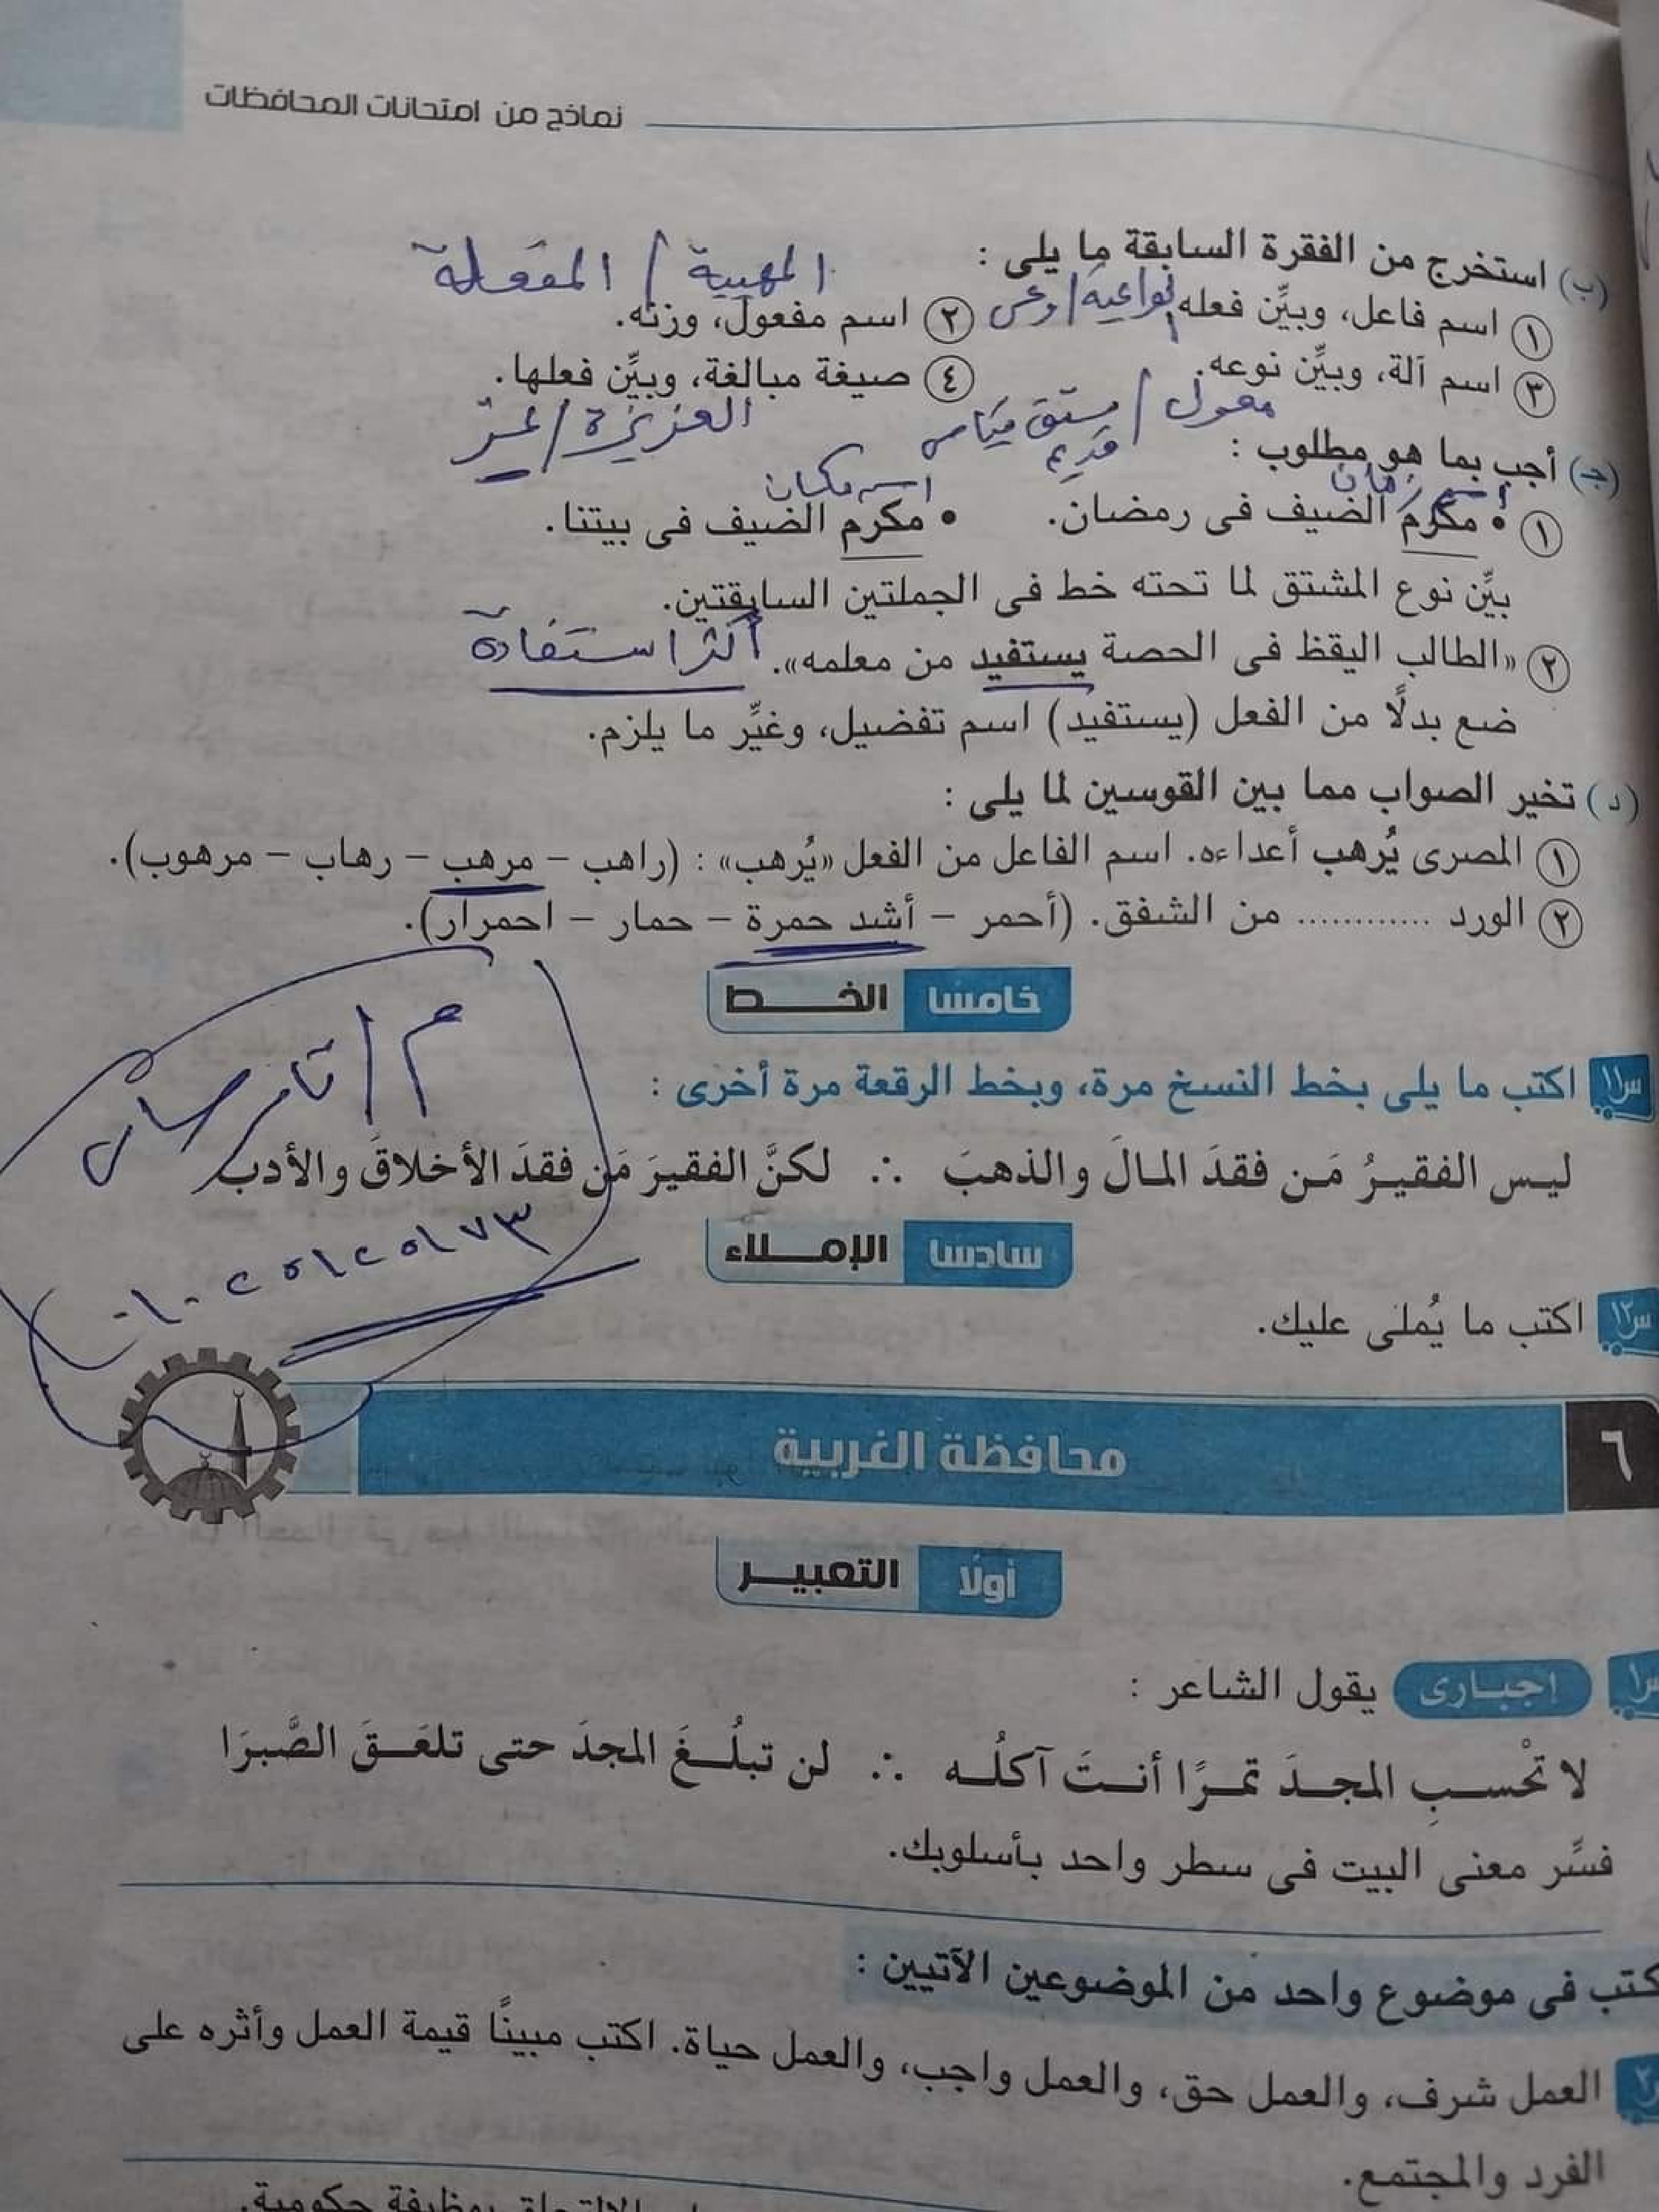 نماذج من امتحانات المحافظات
(ب) استخرج من الفقرة السابقة ما يلى : المهيبة / المفعلة
١ اسم فاعل، وبيِّن فعله. الواعية / وعى ٢ اسم مفعول، وزنه.
٣ اسم آلة، وبيِّن نوعه. ٤ صيغة مبالغة، وبيِّن فعلها.
معول / مشتق قياسى قديم العزيزة / عزّ
(جـ) أجب بما هو مطلوب :
اسم زمان اسم مكان
١ • مكرم الضيف فى رمضان. • مكرم الضيف فى بيتنا.
بيِّن نوع المشتق لما تحته خط فى الجملتين السابقتين.
٢ «الطالب اليقظ فى الحصة يستفيد من معلمه». أكثر استفادة
ضع بدلًا من الفعل (يستفيد) اسم تفضيل، وغيِّر ما يلزم.
(د) تخير الصواب مما بين القوسين لما يلى :
١ المصرى يُرهب أعداءه. اسم الفاعل من الفعل «يُرهب» : (راهب – مرهب – رهاب – مرهوب).
٢ الورد ............ من الشفق. (أحمر – أشد حمرة – حمار – احمرار).
خامسًا الخــــط
م / تامر
س١١ اكتب ما يلى بخط النسخ مرة، وبخط الرقعة مرة أخرى :
ليس الفقيرُ مَن فقدَ المالَ والذهبَ ∴ لكنَّ الفقيرَ مَن فقدَ الأخلاقَ والأدب
سادسًا الإمـــلاء
س١٢ اكتب ما يُملى عليك.
٦ محافظة الغربية
أولًا التعبيـــر
س١ إجبارى يقول الشاعر :
لا تحْسبِ المجدَ تمرًا أنتَ آكلُه ∴ لن تبلُغَ المجدَ حتى تلعَقَ الصَّبرَا
فسِّر معنى البيت فى سطر واحد بأسلوبك.
كتب فى موضوع واحد من الموضوعين الآتيين :
العمل شرف، والعمل حق، والعمل واجب، والعمل حياة. اكتب مبينًا قيمة العمل وأثره على
الفرد والمجتمع.
بوظيفة حكومية.